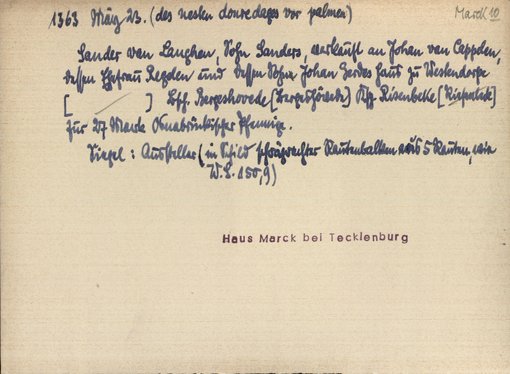 1363 März 23. (des nesten donredages vor palmen) Marck 10
Sander van Langhen, Sohn Sanders, verkauft an Johan van Cappelen,
dessen Ehefrau Regelen und dessen Sohne Johan Gerdes Haus zu Westendorpe
[ / ] Bsch. Bergeshovede [Bergeshövede] Ksp. Risenbeke [Riesenbeck]
für 27 Mark Osnabrückischer Pfennige.
Siegel: Aussteller (in Schild schrägrechter Rautenbalken aus 5 Rauten, wie
W.S. 150,9)
Haus Marck bei Tecklenburg